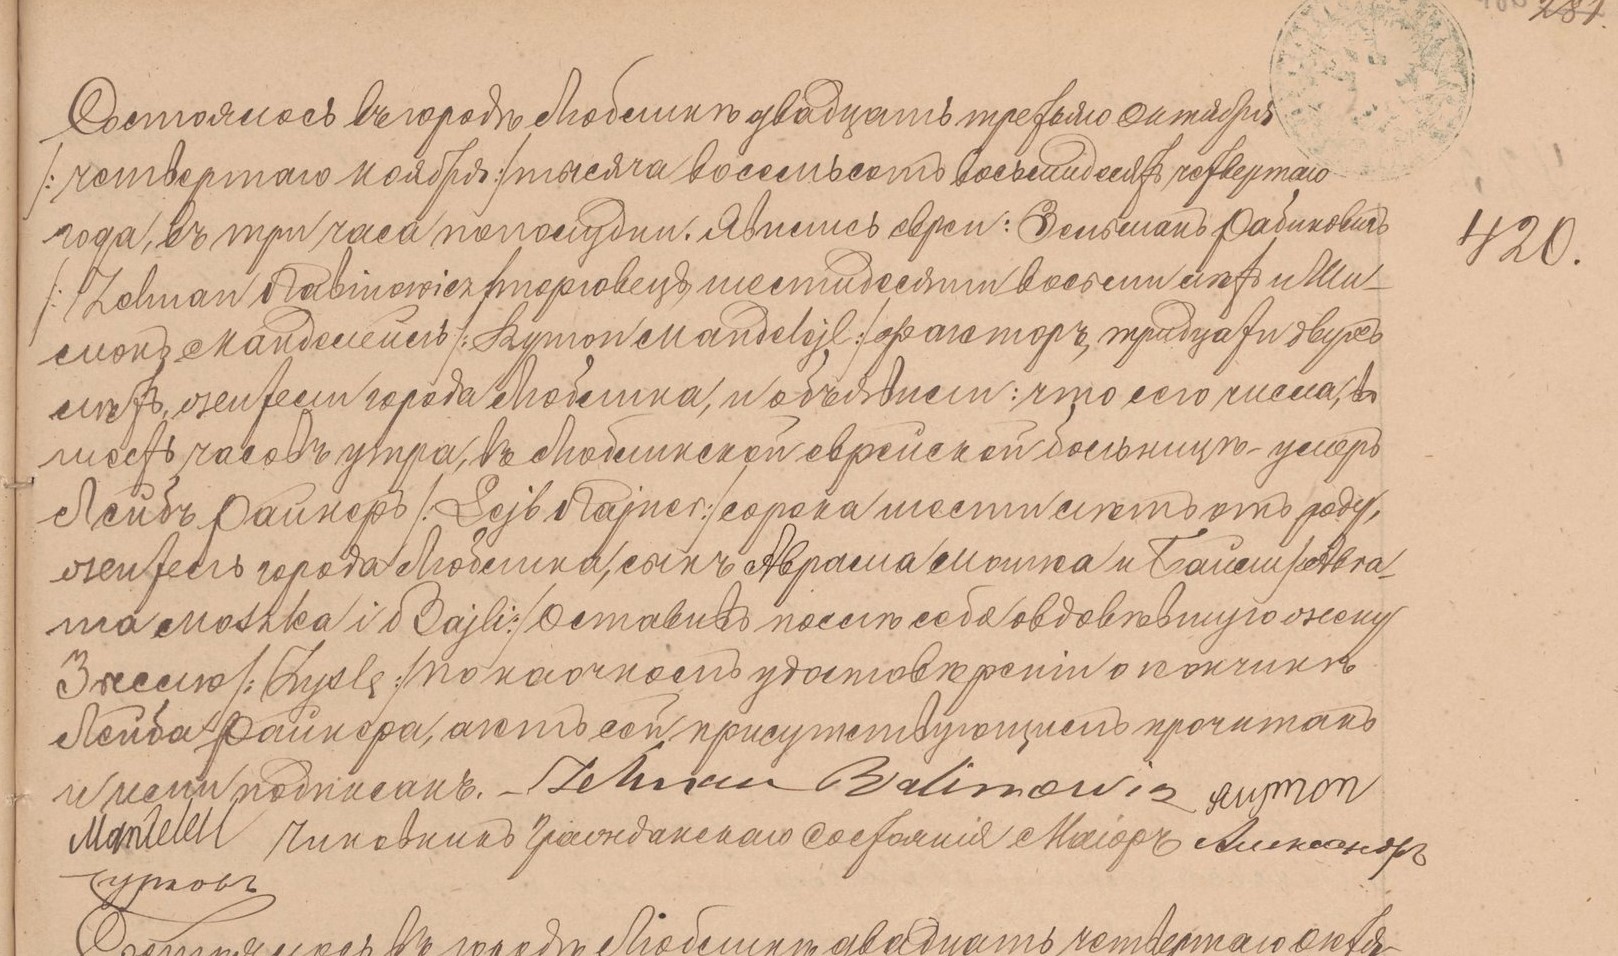 281.
Состоялось въ городѣ Люблинѣ двадцать третьяго Октября
/: четвертаго ноября :/ тысяча восемьсотъ восемьдесятъ четвертаго
года, въ три часа пополудни. Явились евреи: Зельманъ Рабиновичъ
/: Zelman Rabinowicz / торговецъ, шестидесяти восьми лѣтъ и Ши-
монъ Мандельейль /: Szymon Mandelejl :/ факторъ, тридцати двухъ
лѣтъ, жители города Люблина, и объявили: что сего числа, въ
шесть часовъ утра, въ Люблинской еврейской больницѣ - умеръ
Лейбъ Райнеръ /: Lejb Rajner :/ сорока шести лѣтъ отъ роду,
житель города Люблина, сынъ Аврама Мошка и Байли /: Abra-
ma Moszka i Bajli :/ Оставивъ послѣ себя овдовѣвшую жену
Зыслю /: Zyslę :/ По наочномъ удостовѣреніи о кончинѣ
Лейба Райнера, актъ сей, присутствующимъ прочитанъ
и ими подписанъ. - Zelman Rabinowicz
Чиновникъ Гражданскаго Состоянія Маіоръ Александръ
420.
Состоялось въ городѣ Люблинѣ двадцать четвертаго Октя-